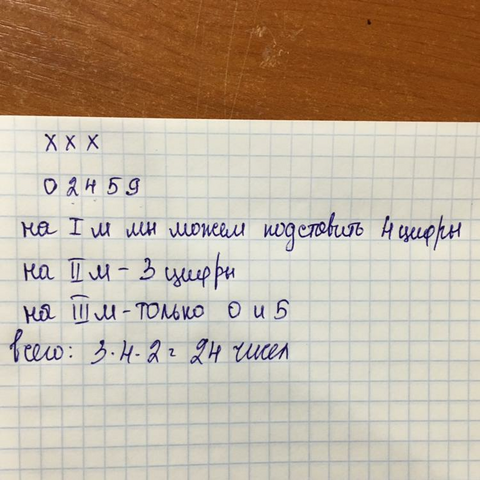 х х х
0 2 4 5 9
на I м мы можем подставить 4 цифры
на II м - 3 цифры
на III м - только 0 и 5
всего: 3·4·2 = 24 чисел